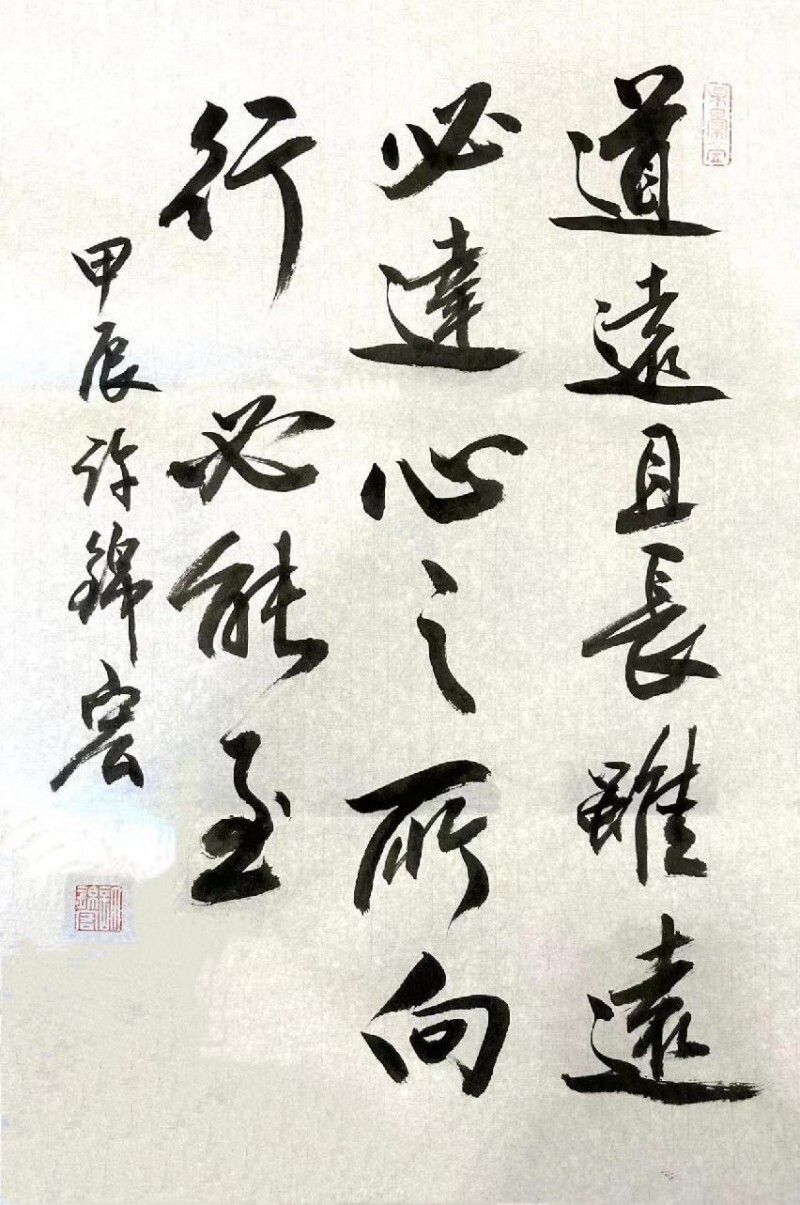 道遠且長雖遠
必達心之所向
行必能至
甲辰許錦宏